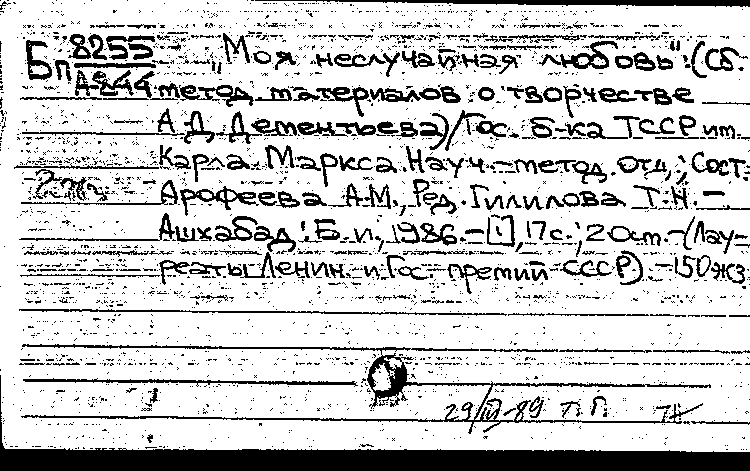 Бп 8255 „Моя неслучайная любовь": (Сб.
А-244 метод. материалов о творчестве
А.Д. Дементьева)/Гос. б-ка ТССР им.
Карла Маркса. Науч.-метод. отд.; Сост.
Арофеева А.М., Ред. Гилилова Т.Н. –
Ашхабад: Б.и., 1986.-[1], 17с.; 20 см.-(Лау-
реаты Ленин. и Гос. премий СССР).-150экз
29/III-89 т. п.